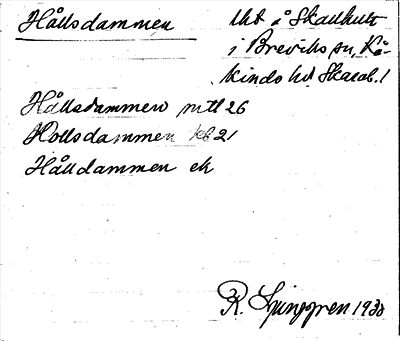 Hållsdammen
till å Skattkult
i Breviks sn, Kå-
kinds hd Skarab. l
Hållsdammen mtl 26
Hollsdammen kb 21
Hålldammen ek
R. Ljunggren 1930